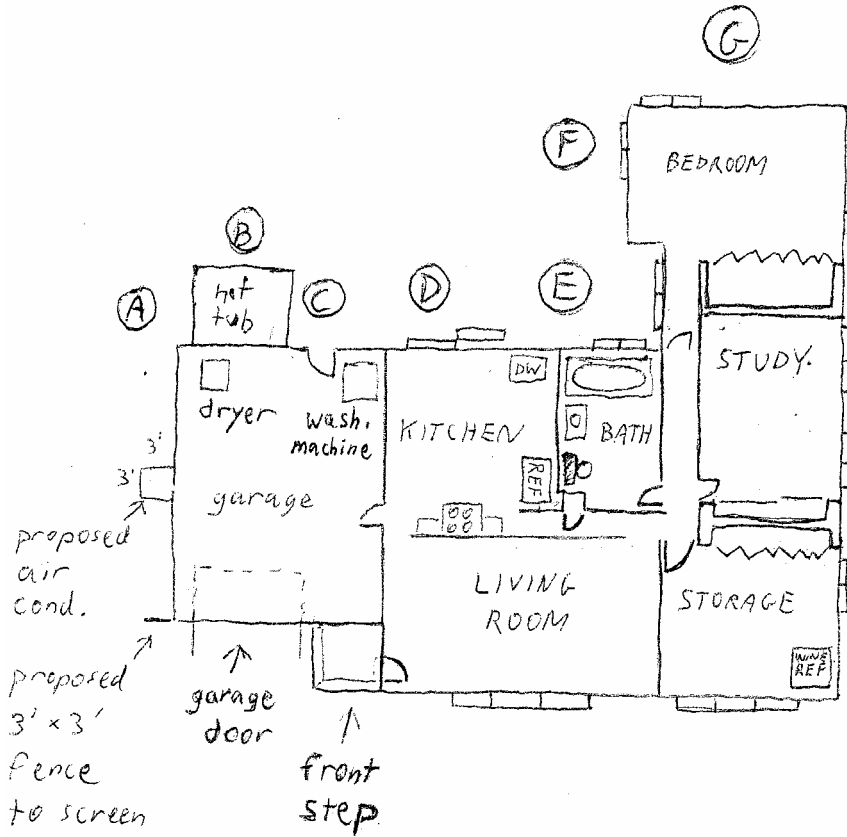 G
F
BEDROOM
B
A
hot
tub
C
D
E
dryer
wash.
machine
DW
KITCHEN
BATH
STUDY.
REF
3'
3'
garage
proposed
air
cond.
LIVING
ROOM
STORAGE
WINE
REF
proposed
3' x 3'
fence
to screen
garage
door
front
step